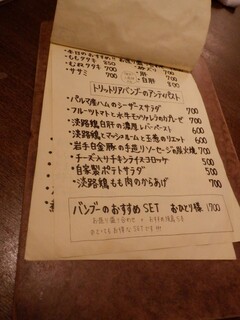 本日のおすすめ!!
ももタタキ 850
むねタタキ 700
ササミ 700
・肝
・白肝 700
トリットリアバンブーのアンティパスト
・パルマ産ハムのシーザーサラダ 700
・フルーツトマトと水牛モッツァレラのカプレーゼ 700
・淡路鶏白肝の濃厚レバーペースト 600
・淡路鶏とマッシュルームと玉葱のリエット 600
・岩手白金豚の手造りソーセージの炭火焼 700
・チーズ入りチキンライスコロッケ 500
・自家製ポテトサラダ 500
・淡路鶏もも肉のからあげ 700
バンブーのおすすめSET おひとり様 1700